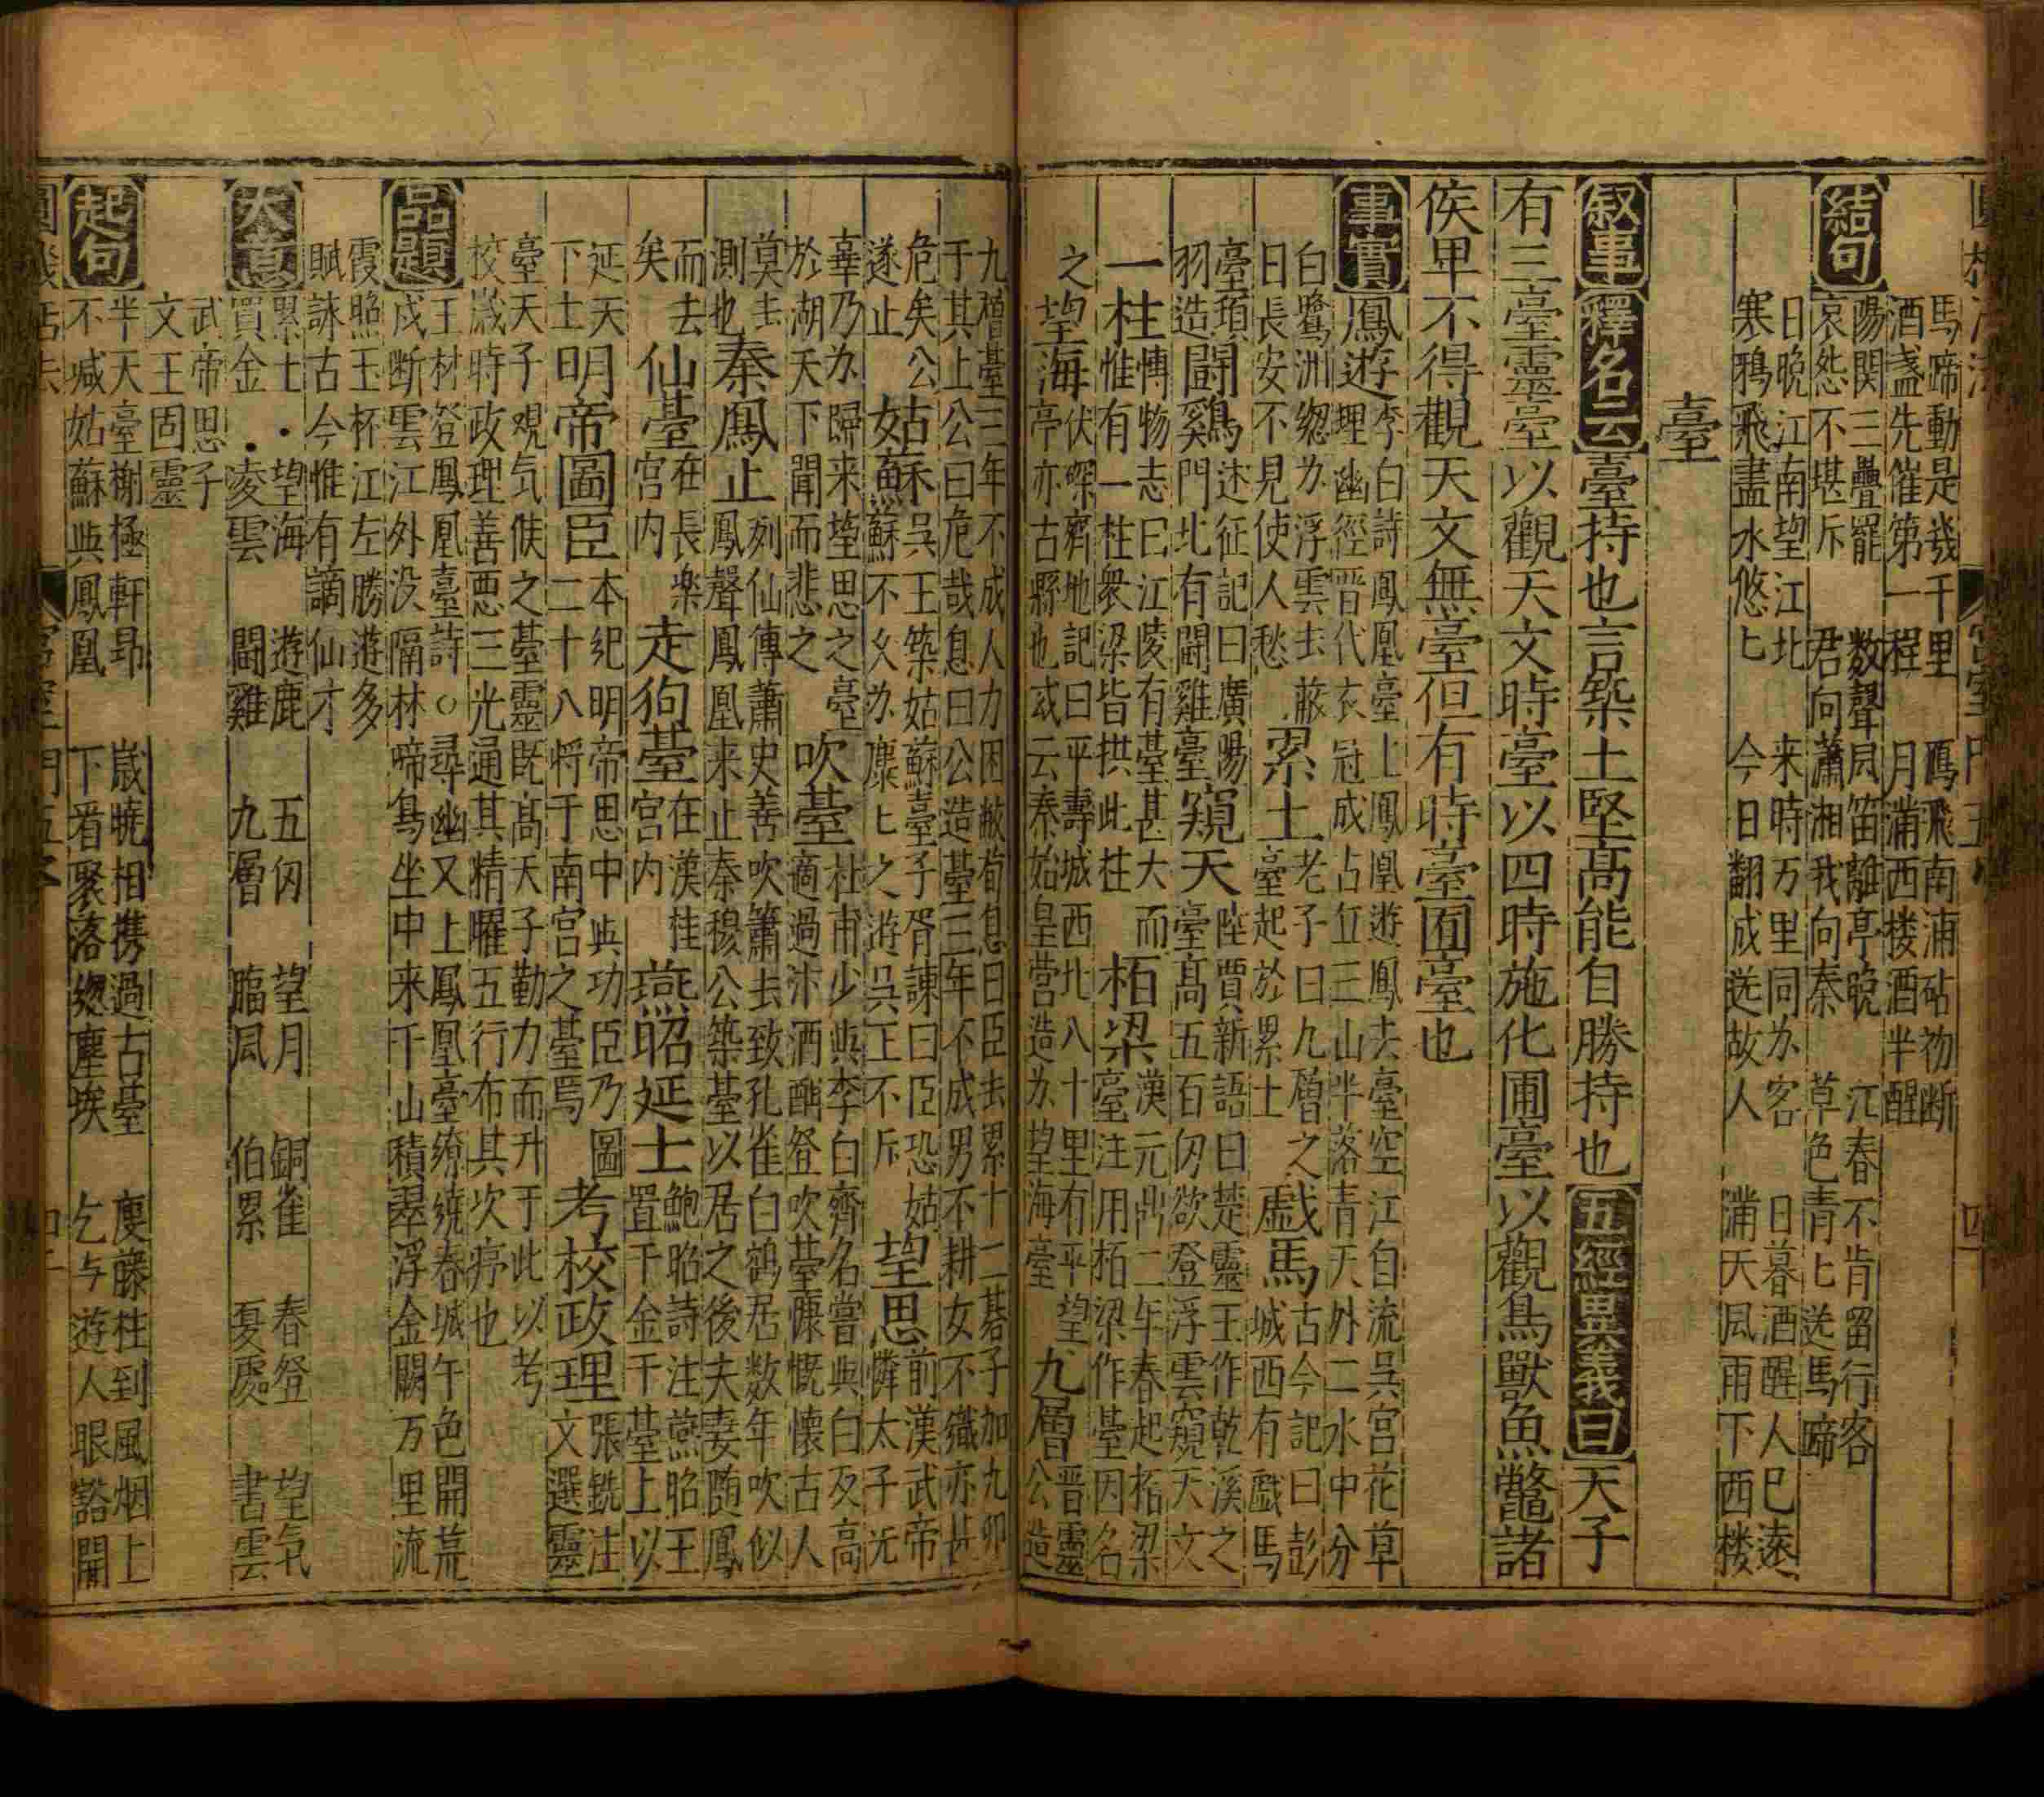 馬蹄動是幾千里　鴈飛南浦砧初断
酒盞先催第一程　月蒲西楼酒半醒
結句
陽関三疊罷　数聲凨笛離亭晚　江春不肯留行客
哀怨不堪斥　君向蕭湘我向秦　草色青匕送馬蹄
日晚江南望江北　来時万里同为客　日暮酒醒人已遠
寒鴉飛盡水悠匕　今日翻成送故人　蒲天凨雨下西楼
臺
叙事 釋名云 臺持也言築土堅髙能自勝持也 五經異義曰 天子
有三臺靈臺以觀天文時臺以四時施化囿臺以觀鳥獸魚鼈諸
侯甲不得觀天文無臺但有時臺囿臺也
事實 鳳遊 李白詩鳳凰臺上鳳凰遊鳳去臺空江自流吳宮花草
埋幽徑晋代衣冠成占丘三山半落青天外二水中分
白鷺洲緫为浮雲去蔽 累土 老子曰九層之 戯馬 古今記曰彭
日長安不見使人愁 臺起於累土 城西有戯馬
臺項 闘鷄 述征記曰廣陽 窺天 陸賈新語曰楚靈王作乾溪之
羽造 門北有闘雞臺 臺髙五百仞欲登浮雲窺天文
一柱 慱物志曰江陵有臺甚大而 栢梁 漢元鼎二年春起栢梁
惟有一柱衆梁皆拱此柱 臺注用栢梁作臺因名
之 望海 伏琛齊地記曰平壽城西北八十里有平望 九層 晋靈
亭亦古縣也或云秦始皇营造为望海臺 公造
九層臺三年不成人力困敝荀息曰臣去累十二碁子加九卵
于其上公曰危哉息曰公造臺三年不成男不耕女不織亦甚
危矣公 姑蘇 吳王築姑蘇臺子胥諫曰臣恐姑 望思 前漢武帝
遂止 蘇不久为麋匕之遊吳王不斥 憐太子无
辜乃为歸来望思之臺 吹臺 杜甫少與李白齊名嘗與白及高
於湖天下聞而悲之 適過汴酒酣登吹臺慷慨懐古人
莫去 秦鳳止 列仙傳蕭史善吹簫去致孔雀白鶴居数年吹似
測也 鳳聲鳳凰来止秦穆公築臺以居之後夫妻随鳳
而去 仙臺 在長楽 走狗臺 在漢桂 燕昭延士 鮑昭詩注燕昭王
矣 宮内 宮内 置千金于臺上以
延天 明帝圖臣 本紀明帝思中興功臣乃圖 考校政理 張銑注
下士 二十八将于南宮之臺焉 文選靈
臺天子观气候之䑓靈既高天子勤力而升于此以考
校歲時政理善悪三光通其精曜五行布其次序也
品題 王材登鳳凰臺詩○尋幽又上鳳凰臺繚繞春城午色開荒
戍断雲江外没隔林啼鳥坐中来千山積翠浮金闕万里流
霞照玉杯江左勝遊多
賦詠古今惟有謫仙才
大意 累土　望海　遊鹿　五仞　望月　銅雀　春登　望気
買金　凌雲　闘雞　九層　臨凨　伯累　夏處　書雲
武帝思子
文王固靈
起句 半天臺榭極軒昂　歲曉相携過古臺　廋藤柱到風烟上
不喊姑蘇與鳳凰　下看聚落緫塵埃　乞与遊人眼豁開